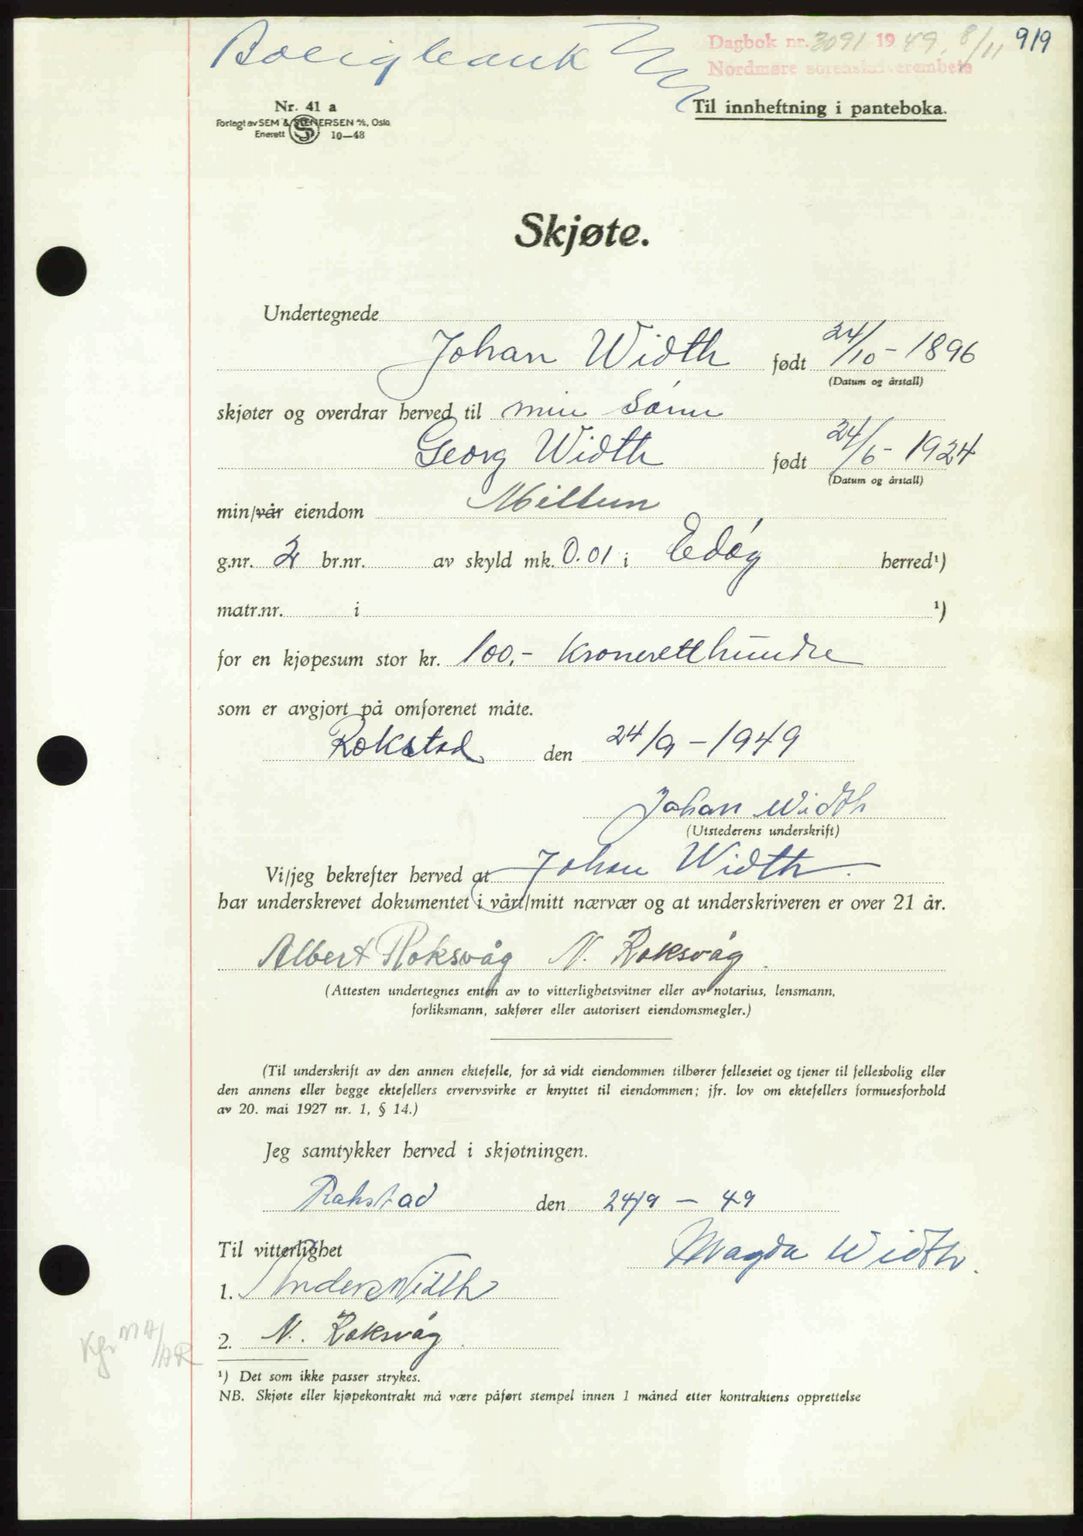 Boligbank
Dagbok nr. 3091 1949. 8/11 919
Nordmøre sorenskriverembete
Nr. 41 a
Forlagt av SEM & STENERSEN A/S, Oslo
Enerett S 10-48
Til innheftning i panteboka.
Skjøte.
Undertegnede
Johan Width født 24/10 - 1896
(Datum og årstall)
skjøter og overdrar herved til min sønn
Georg Width født 24/6 - 1924
(Datum og årstall)
min/vår eiendom Miltun
g.nr. 2 br.nr. av skyld mk. 0.01 i Edøy herred¹)
matr.nr. i ¹)
for en kjøpesum stor kr. 100.- kroneretthundre
som er avgjort på omforenet måte.
Rokstad den 24/9 - 1949
Johan Width
(Utstederens underskrift)
Vi/jeg bekrefter herved at Johan Width.
har underskrevet dokumentet i vårt/mitt nærvær og at underskriveren er over 21 år.
Albert Roksvåg N. Roksvåg.
(Attesten undertegnes enten av to vitterlighetsvitner eller av notarius, lensmann,
forliksmann, sakfører eller autorisert eiendomsmegler.)
(Til underskrift av den annen ektefelle, for så vidt eiendommen tilhører felleseiet og tjener til fellesbolig eller
den annens eller begge ektefellers ervervsvirke er knyttet til eiendommen; jfr. lov om ektefellers formuesforhold
av 20. mai 1927 nr. 1, § 14.)
Jeg samtykker herved i skjøtningen.
Rokstad den 24/9 - 49
Til vitterlighet
Magda Width.
1. Anders Width
2. N. Roksvåg.
¹) Det som ikke passer strykes.
NB. Skjøte eller kjøpekontrakt må være påført stempel innen 1 måned etter kontraktens opprettelse